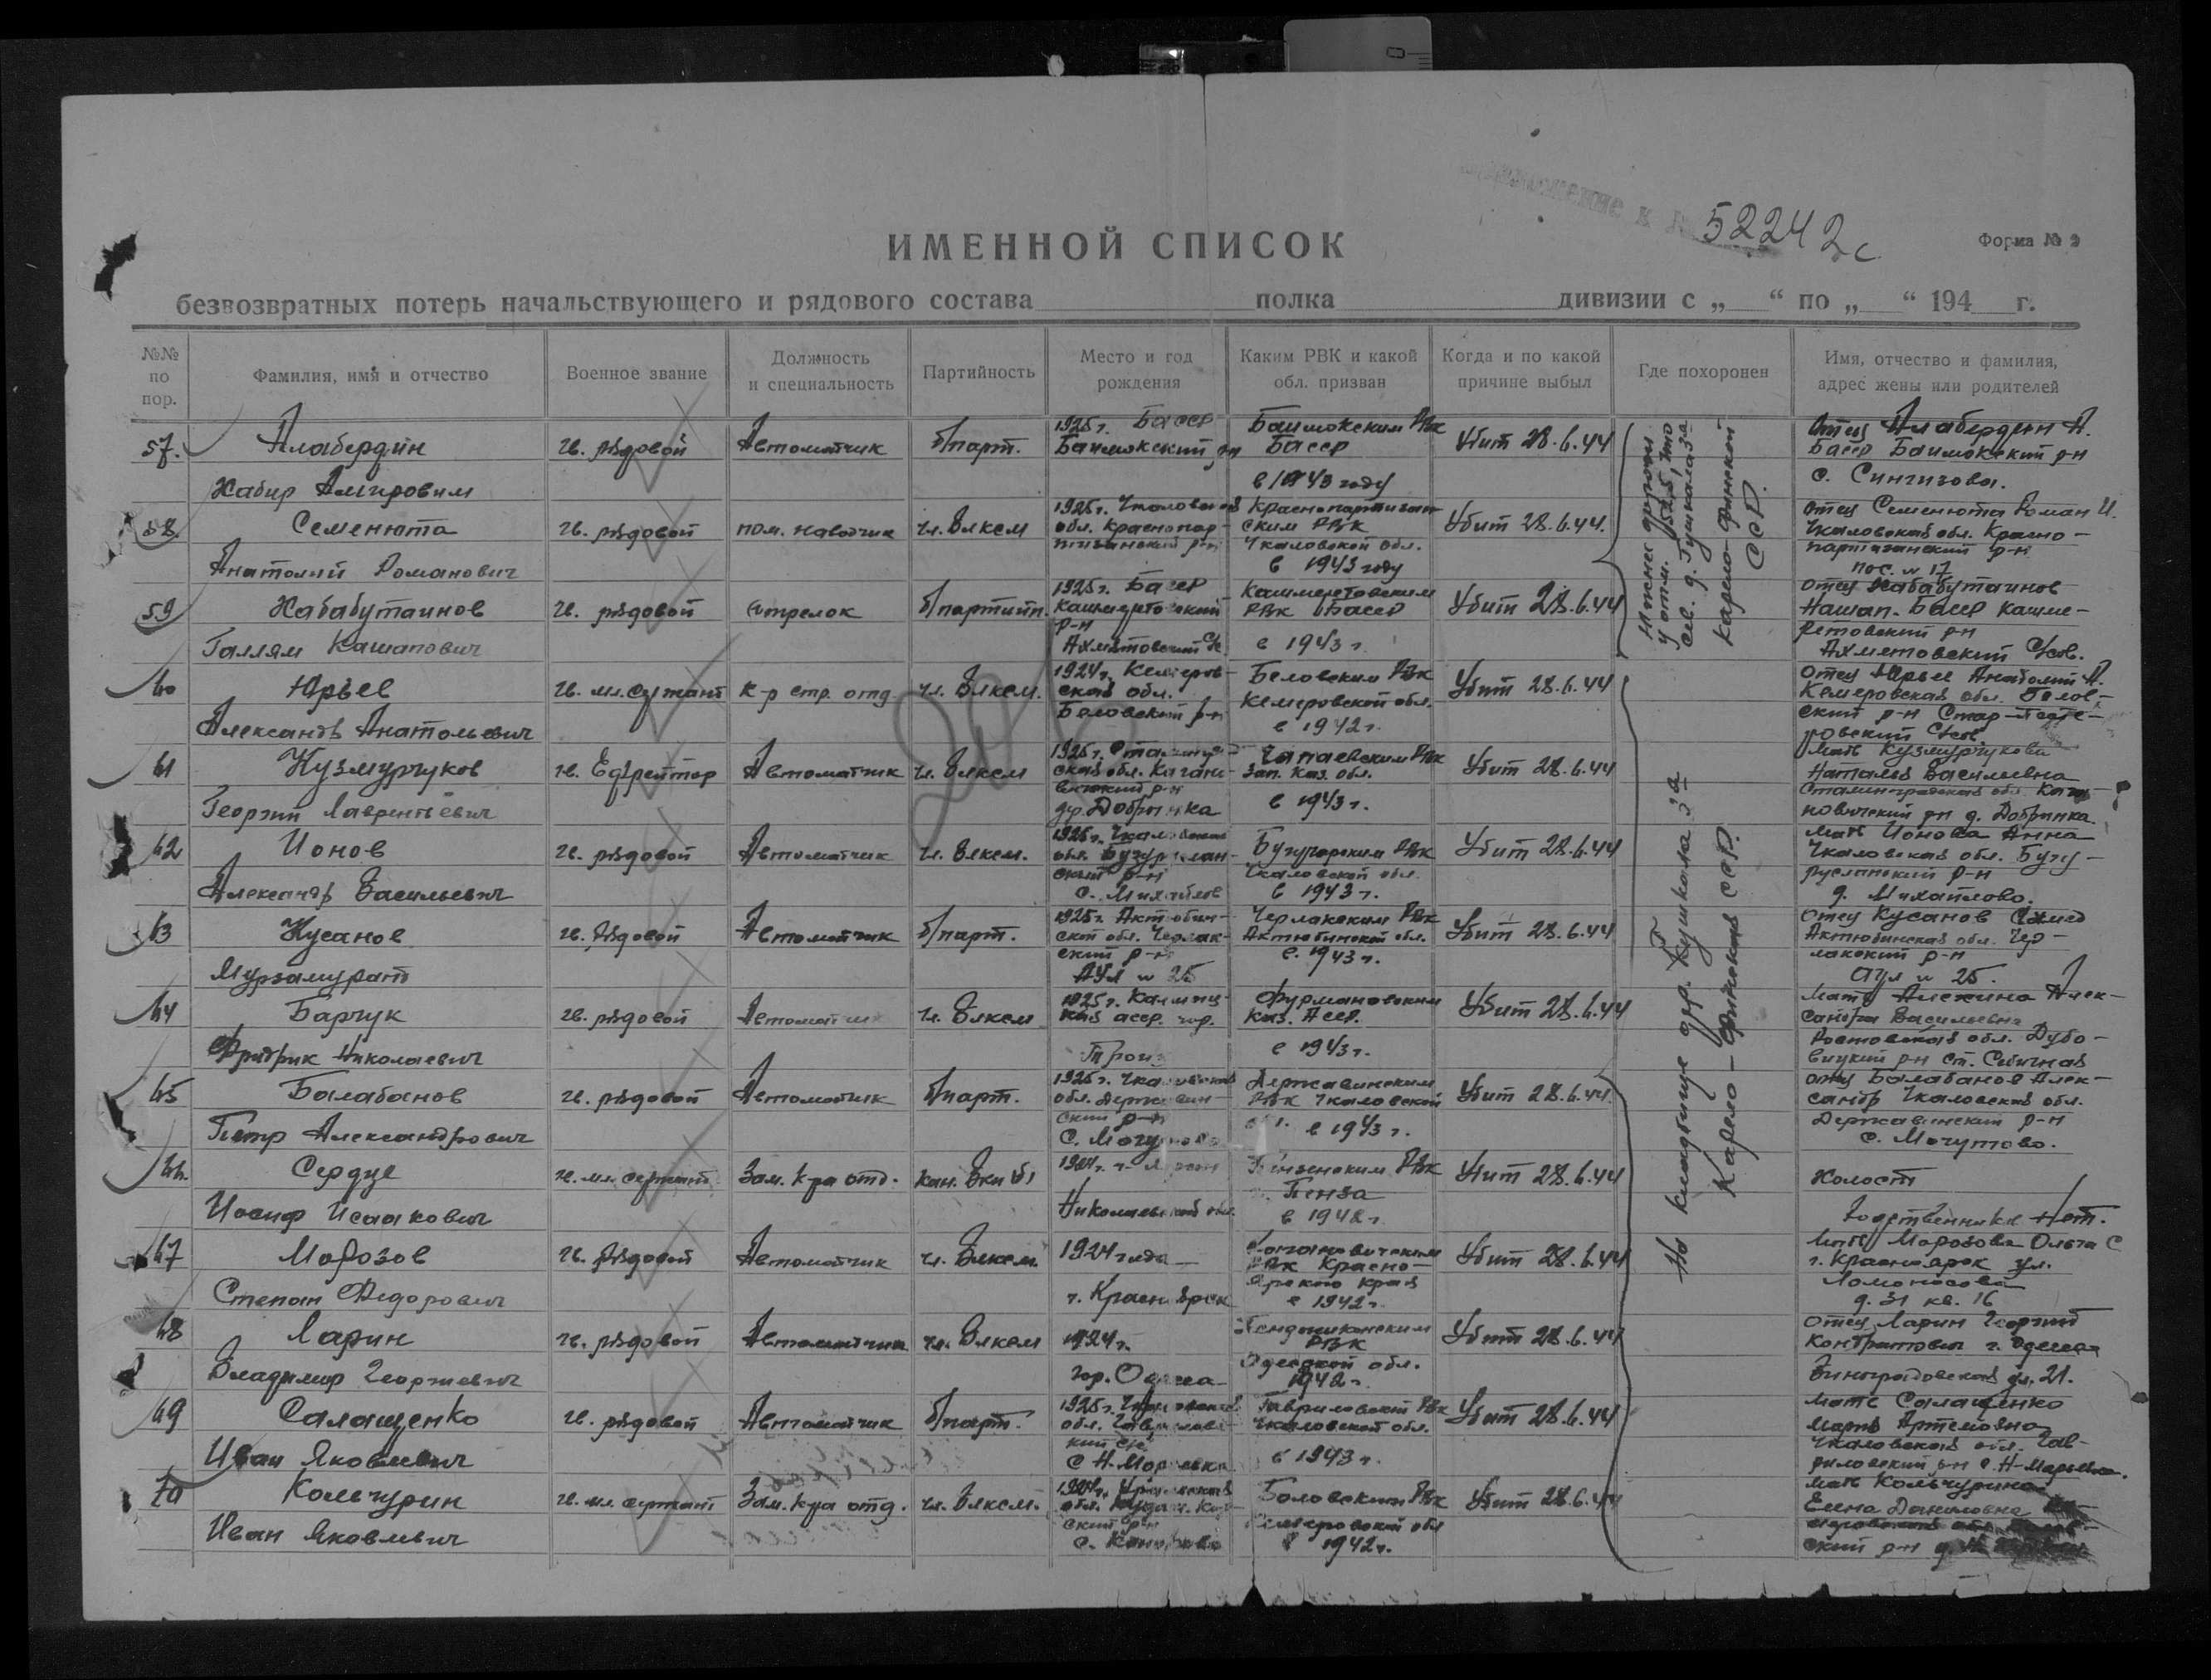 52242с
ИМЕННОЙ СПИСОК
Форма №
безвозвратных потерь начальствующего и рядового состава полка дивизии с „ “ по „ “ 194 г.
№№ по пор.
Фамилия, имя и отчество
Военное звание
Должность и специальность
Партийность
Место и год рождения
Каким РВК и какой обл. призван
Когда и по какой причине выбыл
Где похоронен
Имя, отчество и фамилия, адрес жены или родителей
57. Алабердин гв. рядовой Автоматчик б/парт. 1925 г. Басср Баймакский рн Баймакским РВк Басср в 1943 году Убит 28.6.44 Отец Алабердин А. Басср Баймакский р-н с. Сингизова.
Хабир Амировим
58. Семенюта гв. рядовой пом. наводчик чл. Влксм 1925 г. обл. Краснопар- Краснопартизан- ским РВк Чкаловской обл. в 1943 году Убит 28.6.44. отец Семенюта Роман И. Чкаловская обл. Красно- партизанский р-н пос. № 17
Анатолий Романович
59 Хабабутаинов гв. рядовой стрелок б/партийн. 1925 г. Басср р-н РВк Басср в 1943 г. Убит 28.6.44 отец Хабабутаинов Басср Кашме- ретовский р-н Ахметовский С/сов.
Галлям Кашапович
60 Юрьев гв. мл. сержант к-р стр. отд. чл. Влксм. 1924 г. Кемеров- ская обл. Беловский р-н Беловским РВк Кемеровской обл. в 1942 г. Убит 28.6.44 отец Юрьев Анатолий А. Кемеровская обл. Белов- ский р-н
Александр Анатольевич
61 Кузмурчуков гв. Ефрейтор Автоматчик чл. Влксм 1925 г. ская обл. Кагано- вичский р-н др. Добринка Чапаевским РВк Зап. Каз. обл. в 1943 г. Убит 28.6.44 мать Кузмурчукова Наталья Васильевна Сталинградская обл. Кага- новичский рн д. Добринка.
Георгий Лаврентьевич
62 Ионов гв. рядовой Автоматчик чл. Влксм. 1925 г. Чкаловская обл. ский р-н РВк Чкаловской обл. в 1943 г. Убит 28.6.44 мать Ионова Анна Чкаловская обл. Бугу- русланский р-н д. Михайлово.
Александр Васильевич
63 Кусанов гв. Рядовой Автоматчик б/парт. 1925 г. Актюбин- ской обл. Черлак- ский р-н Аул № 25 Черлакским РВк Актюбинской обл. в 1943 г. Убит 28.6.44 отец Кусанов Актюбинская обл. Чер- лакский р-н аул № 25.
Мурзамурат
64 Барчук гв. рядовой Автоматчик чл. Влксм 1925 г. Калмыц- кая асср. гор. Фурмановским Каз. Асср. в 1943 г. Убит 28.6.44 мать Алехина Алек- сандра Васильевна Ростовская обл. Дубо- вицкий р-н ст.
Фридрик Николаевич
65 Балабанов гв. рядовой Автоматчик б/парт. 1925 г. Чкаловская обл. Державин- ский р-н Державинским РВк Чкаловской обл. в 1943 г. Убит 28.6.44. отец Балабанов Алек- сандр Чкаловская обл. Державинский р-н с. Мочутово.
Петр Александрович
66. Сердце гв. мл. сержант Зам. к-ра отд. кан. Вкп(б) Николаевской обл. Пензенским РВк г. Пенза в 1942 г. Убит 28.6.44 Холост Родственников нет.
Иосиф Исаакович
67 Морозов гв. Рядовой Автоматчик чл. Влксм. 1924 года г. Красноярск Кагановичским РВк Красно- ярского края в 1942 г. Убит 28.6.44 мать Морозова Ольга С г. Красноярск ул. Ломоносова д. 31 кв. 16
Степан Федорович
68 Ларин гв. рядовой Автоматчик чл. Влксм 1924 г. гор. Одесса РВК Одесской обл. 1942 г. Убит 28.6.44 отец Ларин Георгий Кондратович г. Одесса ул. 21.
Владимир Георгиевич
69 Салащенко гв. рядовой Автоматчик б/парт. 1925 г. Чкаловская обл. Гавриловским РВк Чкаловской обл. в 1943 г. Убит 28.6.44 мать Салащенко Артемовна Чкаловская обл. Гав- риловский рн с. Н-Марьевка.
Иван Яковлевич
70 Кольчурин гв. мл. сержант Зам. к-ра отд. чл. Влксм. Беловским РВк Кемеровской обл в 1942 г. Убит 28.6.44 мать Кольчурина Елена Даниловна
Иван Яковлевич
Карело-Финской ССР.
На кладбище др. Кушкала 3а
Карело-Финская ССР.